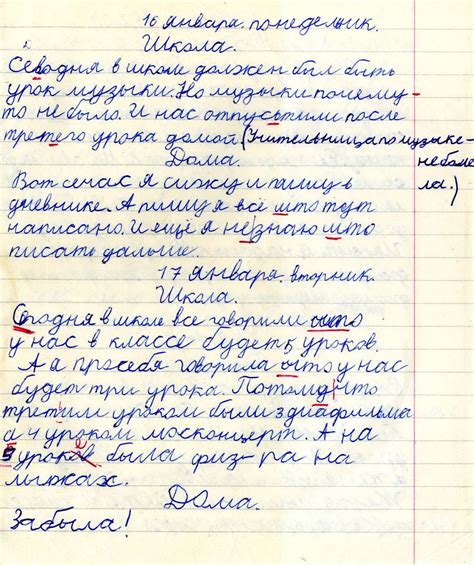 16 января. понедельник.
Школа.
Севодня в школе должен был быть
урок музыки. Но музыки почему-
то не было. И нас отпусьтили после
третего урока домой (Учительница по музыке-
Дома. не боле
Вот сечас я сижу и пишу в ла.)
дневнике. А пишу я всё што тут
написано. И ещё я не знаю што
писать дальше.
17 января. вторник.
Школа.
Согодня в школе все говорили што
у нас в классе будет 5 уроков.
А я просебя говорила што у нас
будет три урока. Потому что
третим уроком были з диафильма
а 4 уроком москонцерт. А на
5 уроке была физ-ра на
лыжах.
Дома.
Забыла!